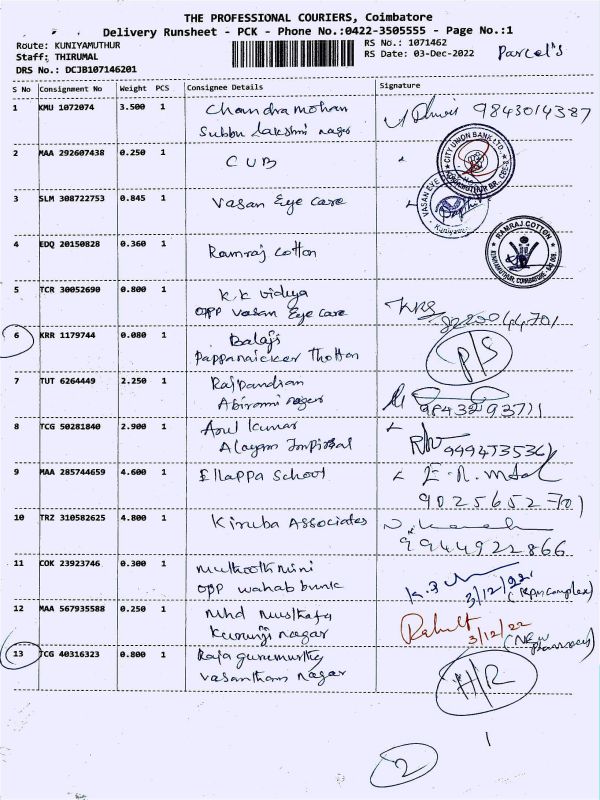 THE PROFESSIONAL COURIERS, Coimbatore
Delivery Runsheet - PCK - Phone No.:0422-3505555 - Page No.:1
Route: KUNIYAMUTHUR RS No.: 1071462
Staff: THIRUMAL RS Date: 03-Dec-2022 Parcel's
DRS No.: DCJB107146201
S No Consignment No Weight PCS Consignee Details Signature
1 KMU 1072074 3.500 1 Chandramohan 9843014387
Subbu Lakshmi nagar
2 MAA 292607438 0.250 1 CUB CITY UNION BANK LTD.
3 SLM 308722753 0.845 1 Vasan Eye Care VASAN EYE
4 EDQ 20150828 0.360 1 Ramraj Cotton RAMRAJ COTTON
5 TCR 30052690 0.800 1 K.K Vidiya
opp Vasan Eye Care
6 KRR 1179744 0.080 1 Balaji P/S
Pappanaicker Thottan
7 TUT 6264449 2.250 1 Rajpandian
Abirami nagar 9843293711
8 TCG 50281840 2.900 1 Arul Kumar
Alayam
9 MAA 285744659 4.600 1 Ellappa School
9025652701
10 TRZ 310582625 4.800 1 Kiruba Associates
9944922866
11 COK 23923746 0.300 1 Muthoot mini
opp wahab bunk 3/12/22 (RPM Complex)
12 MAA 567935588 0.250 1 Mhd Musthafa Rahult
Kurunji nagar 3/12/22 (New pharmacy)
13 TCG 40316323 0.800 1 Raja gurumurthy H/R
Vasantham nagar
1
2